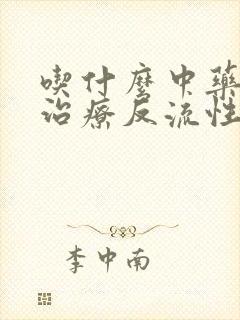 喫什麼中藥
治療反流性
李中南